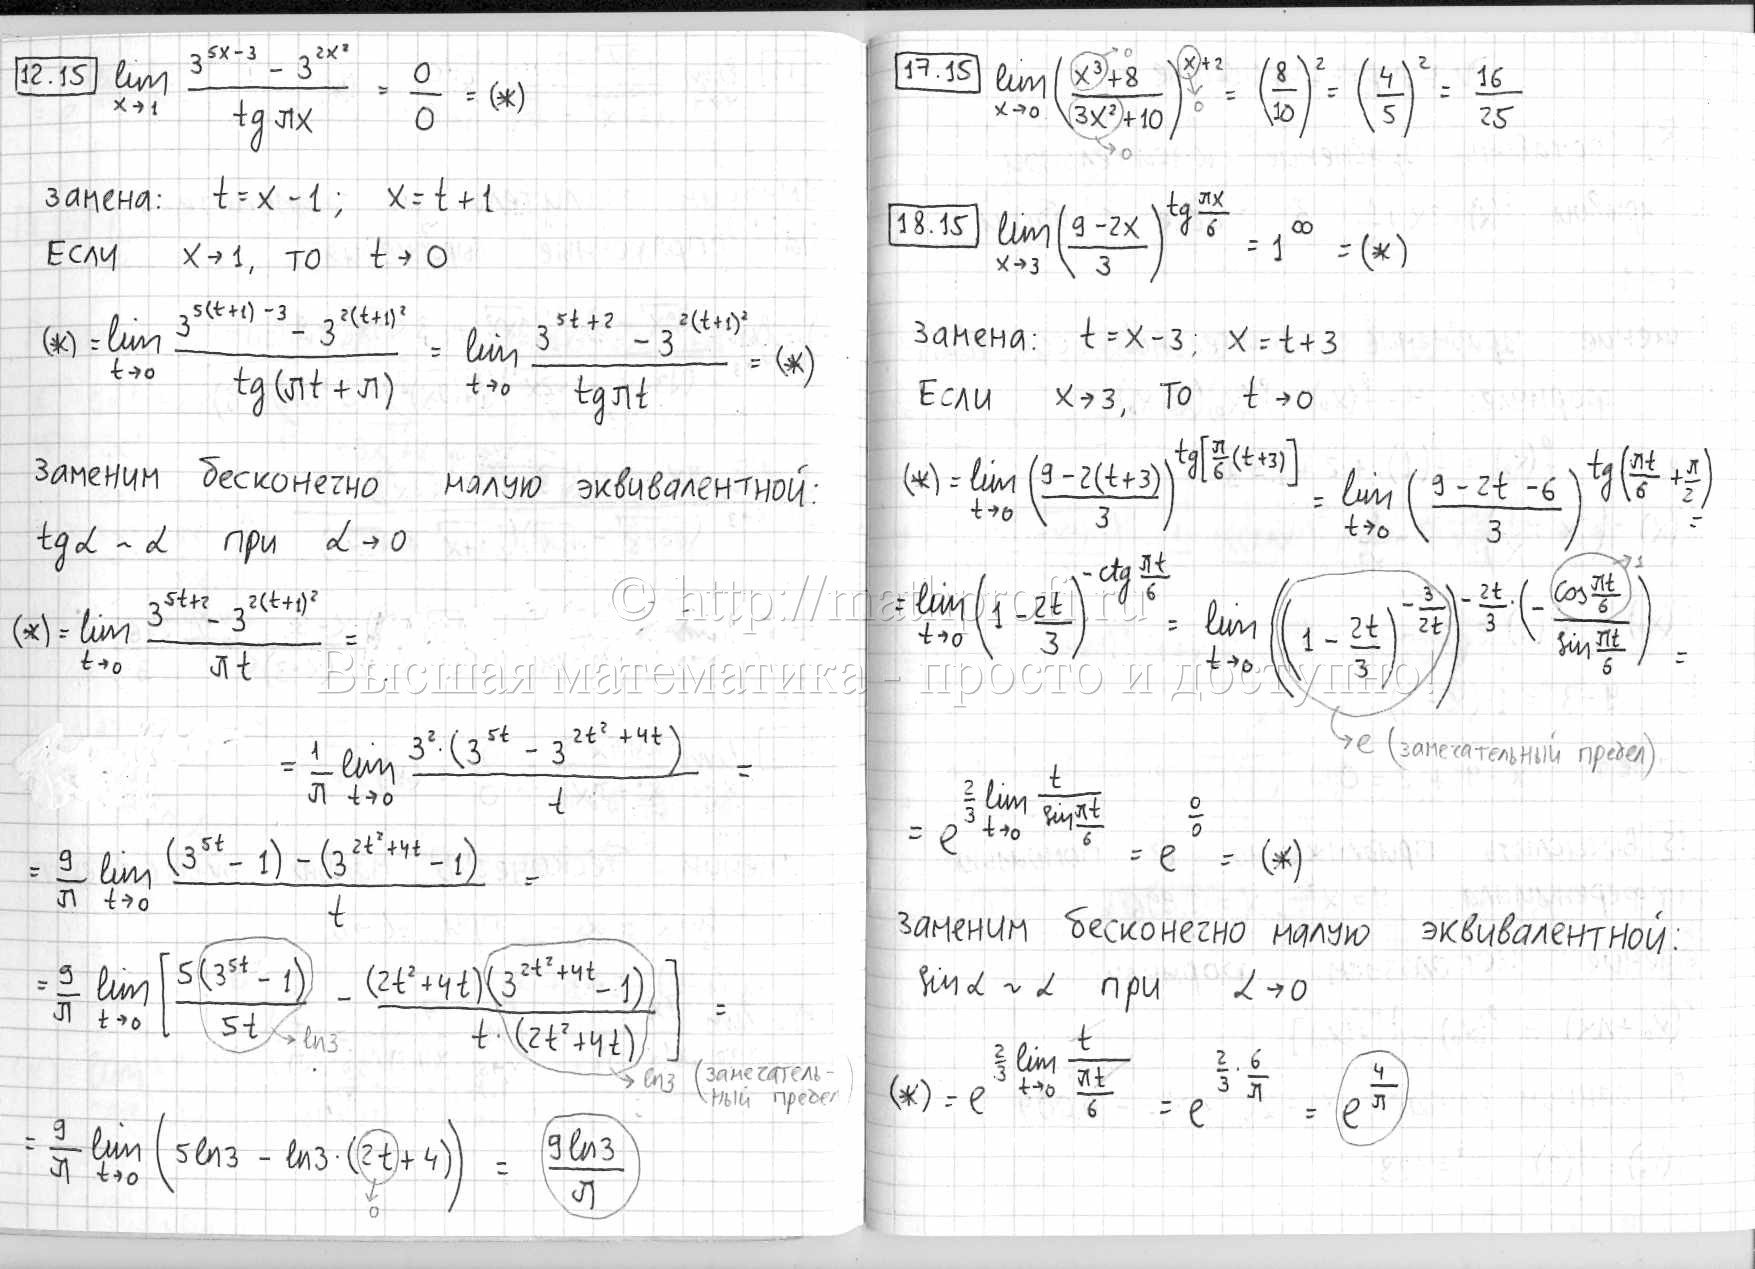 12.15 lim x→1 (3^(5x-3) - 3^(2x²))/(tg πx) = 0/0 = (*)
Замена: t = x - 1; x = t + 1
Если x→1, то t→0
(*) = lim t→0 (3^(5(t+1)-3) - 3^(2(t+1)²))/(tg(πt + π)) = lim t→0 (3^(5t+2) - 3^(2(t+1)²))/(tg πt) = (*)
Заменим бесконечно малую эквивалентной:
tg α ~ α при α→0
(*) = lim t→0 (3^(5t+2) - 3^(2(t+1)²))/(πt) =
= 1/π lim t→0 (3²·(3^(5t) - 3^(2t²+4t)))/t =
= 9/π lim t→0 ((3^(5t) - 1) - (3^(2t²+4t) - 1))/t =
= 9/π lim t→0 [5(3^(5t) - 1)/(5t) - (2t²+4t)(3^(2t²+4t) - 1)/(t·(2t²+4t))] =
→ ln3
→ ln3 (замечатель-
ный предел)
= 9/π lim t→0 (5ln3 - ln3·(2t + 4)) = 9ln3/π
↓
0
17.15 lim x→0 ((x³ + 8)/(3x² + 10))^(x+2) = (8/10)² = (4/5)² = 16/25
→0
→0
↓
0
18.15 lim x→3 ((9-2x)/3)^(tg πx/6) = 1^∞ = (*)
Замена: t = x - 3; x = t + 3
Если x→3, то t→0
(*) = lim t→0 ((9-2(t+3))/3)^(tg[π/6(t+3)]) = lim t→0 ((9-2t-6)/3)^(tg(πt/6 + π/2)) =
= lim t→0 (1 - 2t/3)^(-ctg πt/6) = lim t→0 ((1 - 2t/3)^(-3/2t))^(-2t/3·(-cos πt/6 / sin πt/6)) =
→1
→ e (замечательный предел)
= e^(2/3 lim t→0 t/(sin πt/6)) = e^(0/0) = (*)
Заменим бесконечно малую эквивалентной:
sin α ~ α при α→0
(*) = e^(2/3 lim t→0 t/(πt/6)) = e^(2/3·6/π) = e^(4/π)
© http://mathprofi.ru
Высшая математика - просто и доступно!